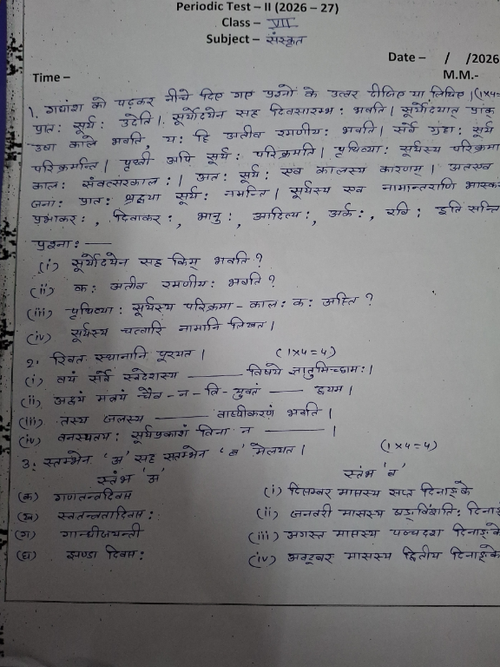 Periodic Test – II (2026 – 27)
Class – VII
Subject – संस्कृत
Date – / /2026
Time –
M.M.-
1. गद्यांश को पढ़कर नीचे दिए गए प्रश्नों के उत्तर दीजिए या लिखिए। (1x4=
प्रातः सूर्यः उदेति। सूर्योदयेन सह दिवसारम्भः भवति। सूर्योदयात् प्राक्
उषा काले भवति, यः हि अतीव रमणीयः भवति। सर्वे ग्रहाः सूर्य
परिक्रमन्ति। पृथ्वी अपि सूर्यः परिक्रमति। पृथिव्याः सूर्यस्य परिक्रमा
कालः संवत्सरकालः। अतः सूर्यः एव कालस्य कारणम्। अतएव
जनाः प्रातः श्रद्धया सूर्यः नमन्ति। सूर्यस्य एव नामान्तराणि भास्क
प्रभाकरः, दिवाकरः, भानुः, आदित्यः, अर्कः, रविः इति सन्ति
प्रश्नाः —
(i) सूर्योदयेन सह किम् भवति?
(ii) कः अतीव रमणीयः भवति?
(iii) पृथिव्याः सूर्यस्य परिक्रमा-कालः कः अस्ति?
(iv) सूर्यस्य चत्वारि नामानि लिखत।
2. रिक्त स्थानानि पूरयत। (1x4=4)
(i) वयं सर्वे स्वदेशस्य ——— विषये ज्ञातुमिच्छामः।
(ii) नैव - न - वि ——— ह्यम।
(iii) तस्य जलस्य ——— वाष्पीकरणं भवति।
(iv) वनस्पतयः सूर्यप्रकाशं विना न ———।
3. स्तम्भेन 'अ' सह स्तम्भेन 'ब' मेलयत। (1x4=4)
स्तंभ 'अ' स्तंभ 'ब'
(क) गणतन्त्रदिवस (i) दिसम्बर मासस्य सप्त दिनाङ्के
(ख) स्वतन्त्रतादिवसः (ii) जनवरी मासस्य षड्विंशतिः दिनाङ्
(ग) गान्धीजयन्ती (iii) अगस्त मासस्य पञ्चदश दिनाङ्के
(घ) झण्डा दिवसः (iv) अक्टूबर मासस्य द्वितीय दिनाङ्के